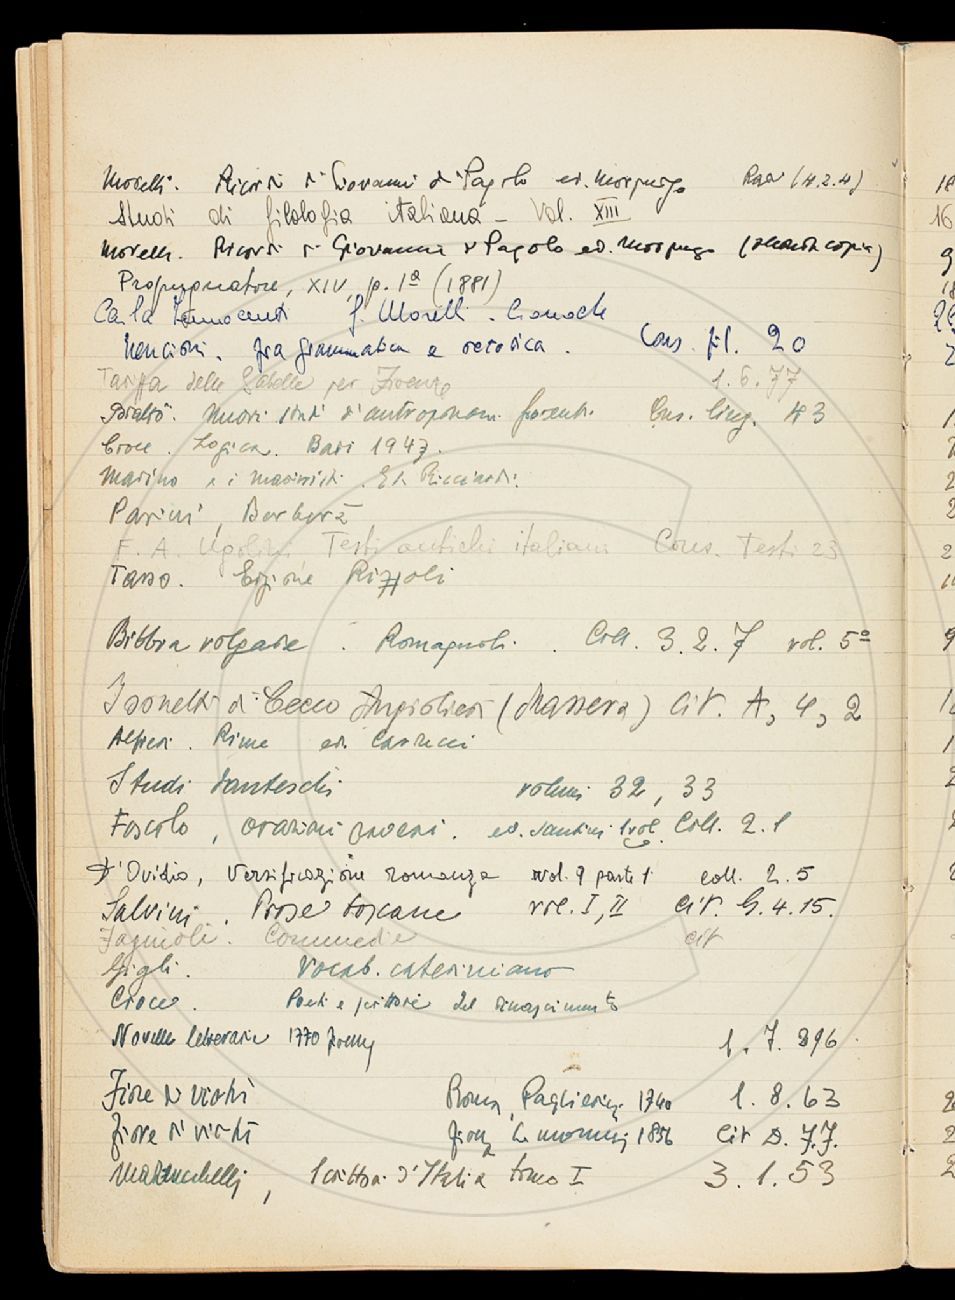 Morelli. Ricordi di Giovanni di Pagolo ed. Morpurgo (4.2.4)
Studi di filologia italiana - Vol. XIII
Morelli. Ricordi di Giovanni di Pagolo ed. Morpurgo (seconda copia)
Propugnatore, XIV, p. 1ª (1881)
Carla Innocenti G. Morelli. Cronache
Nencioni. fra grammatica e retorica. Cons. fil. 20
Tariffa delle Gabelle per Firenze 1.6.77
Nuovi studi d'antroponim. fiorent. Cons. ling. 43
Croce. Logica. Bari 1947.
Marino e i marinisti. Ed. Ricciardi.
Parini, Barberà
F. A. Ugolini Testi antichi italiani Cons. Testi 23
Tasso. Edizione Rizzoli
Bibbia volgare. Romagnoli. Coll. 3.2.7 vol. 5º
I sonetti di Cecco Angiolieri (Massera) Cit. A, 4, 2
Alfieri. Rime ed. Carducci
Studi danteschi volumi 32, 33
Foscolo, orazioni pavesi. ed. Santini 1 vol. Coll. 2.1
D'Ovidio, Versificazione romanza vol. 9 parte 1 coll. 2.5
Salvini. Prose toscane vol. I, II Cit. G.4.15.
Fagiuoli. Commedie cit
Gigli. Vocab. cateriniano
Croce. Poeti e scrittori del rinascimento
Novelle letterarie 1770 1.7.896
Fiore di virtù Roma, Pagliarini 1740 1.8.63
Fiore di virtù 1856 Cit D. 7.7.
Mazzuchelli, Scrittori d'Italia tomo I 3.1.53